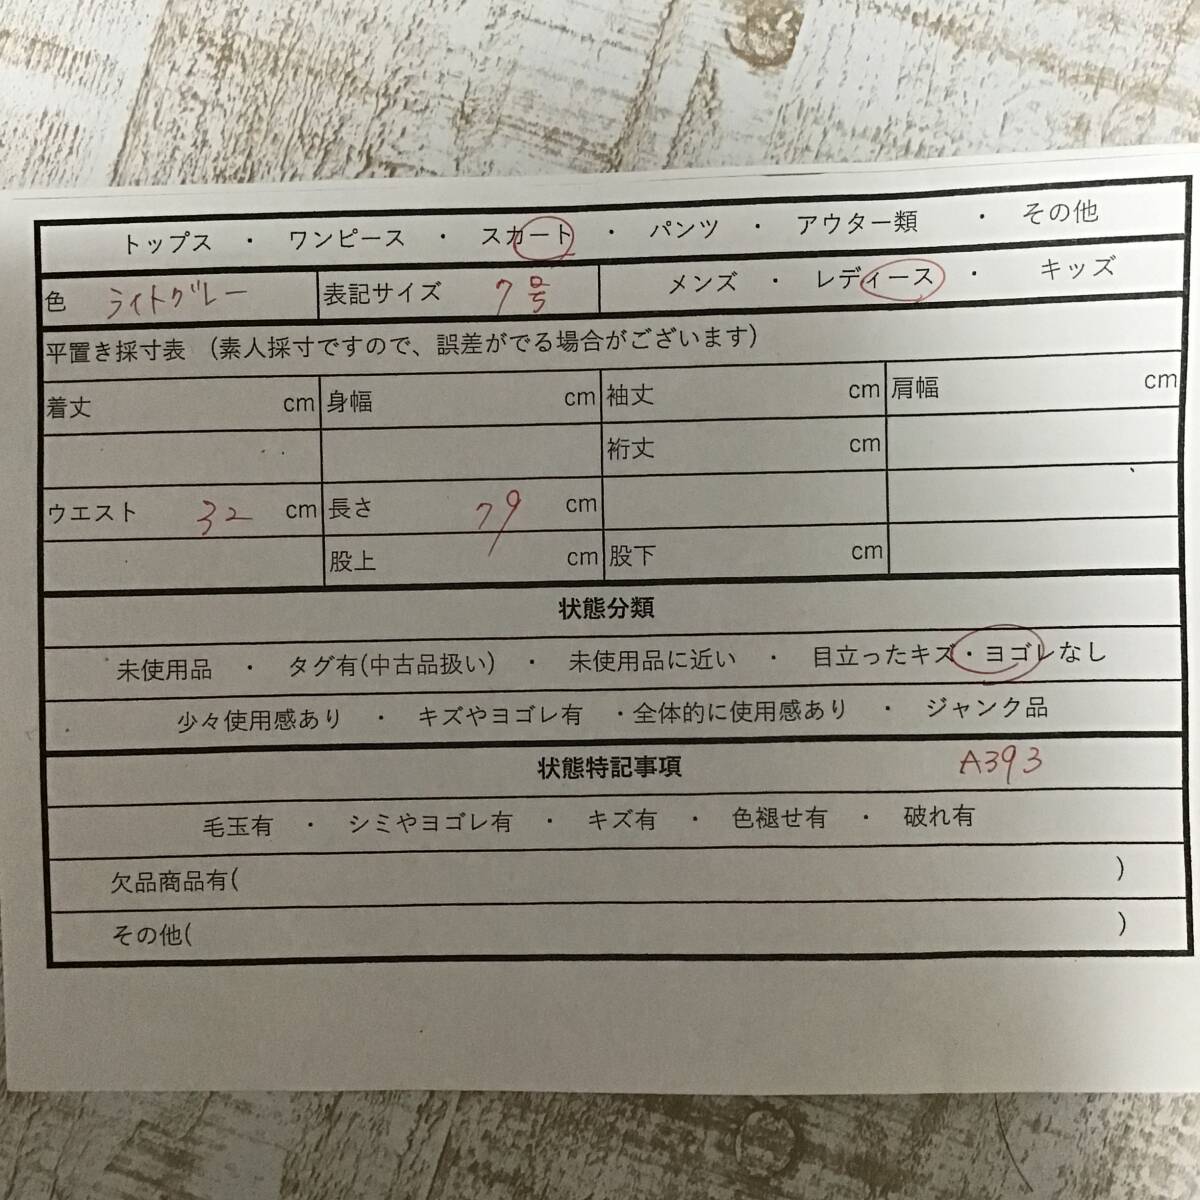 トップス ・ ワンピース ・ スカート ・ パンツ ・ アウター類 ・ その他
色 ライトグレー 表記サイズ 7号 メンズ ・ レディース ・ キッズ
平置き採寸表 (素人採寸ですので、誤差がでる場合がございます)
着丈 cm 身幅 cm 袖丈 cm 肩幅 cm
裄丈 cm
ウエスト 32 cm 長さ 79 cm
股上 cm 股下 cm
状態分類
未使用品 ・ タグ有(中古品扱い) ・ 未使用品に近い ・ 目立ったキズ・ヨゴレなし
少々使用感あり ・ キズやヨゴレ有 ・全体的に使用感あり ・ ジャンク品
状態特記事項 A393
毛玉有 ・ シミやヨゴレ有 ・ キズ有 ・ 色褪せ有 ・ 破れ有
欠品商品有( )
その他( )